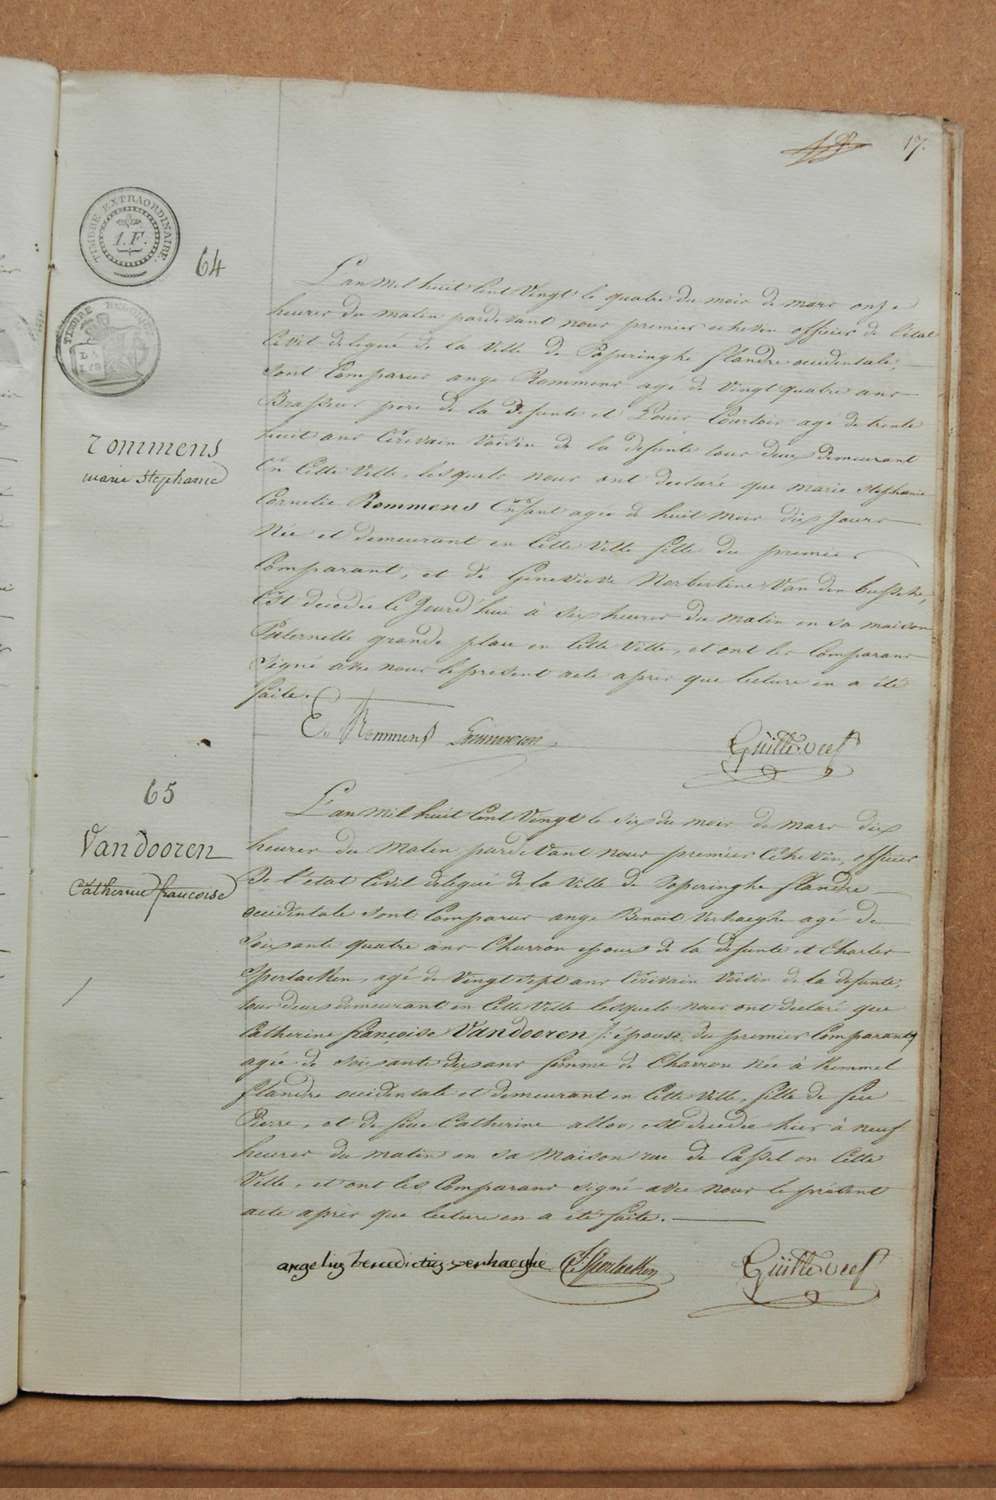 17.
TIMBRE EXTRAORDINAIRE.
1.F.
64
TIMBRE
L'an mil huit Cent Vingt le quatre du mois de mars onze
heures du matin pardevant nous premier echevin officier de l'état
Civil delegué de la Ville de Poperinghe flandre occidentale,
Sont Comparus ange Rommens agé de Vingt quatre ans
Brasseur pere de la defunte et Louis Courtois agé de trente
huit ans Ecrivain Voisin de la defunte tous deux demeurant
En Cette Ville, lesquels nous ont declaré que marie Stephanie
Cornelie Rommens Enfant agée de huit mois dix jours
Née et demeurant en Cette Ville fille du premier
Comparant, et de Genevieve Norbertine Van den bussche,
Est decedée Ce Jourd'hui à Six heures du matin en sa maison
Paternelle grande place en Cette Ville, et ont les Comparans
Signé avec nous le présent acte après que lecture en a été
faite.
rommens
marie Stephanie
Rommens
65
Vandooren
Catherine francoise
L'an mil huit Cent Vingt le six du mois de mars dix
heures du matin pardevant nous premier Echevin, officier
de l'état Civil delegué de la Ville de Poperinghe flandre
occidentale Sont Comparus ange Benoit Verhaeghe agé de
Soixante quatre ans Charron epoux de la defunte et Charles
Sperlacken, agé de Vingt Sept ans Ecrivain Voisin de la defunte,
tous deux demeurant en Cette Ville lesquels nous ont declaré que
Catherine françoise Vandooren épouse du premier Comparant
agée de Soixante dix ans femme de Charron Née à Kemmel
flandre occidentale et demeurant en Cette Ville, fille de feu
Pierre, et de feue Catherine alloo, est decedée hier à neuf
heures du matin en sa Maison rue de Cassel en Cette
Ville, et ont les Comparans signé avec Nous le présent
acte après que lecture en a été faite.
angelus benedictus verhaeghe